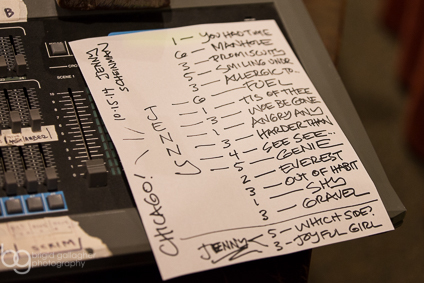 B
SCENE 1
1 — YOU HAD TIME
6 — MANHOLE
3 — PROMISCUITY
5 — SMILING UNDER
3 — ALLERGIC TO..
— FUEL
6 — 'TIS OF THEE
1 — WOE BE GONE
1 — ANGRY ANY
1 — HARDER THAN
4 — SEE SEE...
5 — GENIE
2 — EVEREST
3 — OUT OF HABIT
1 — SHY
3 — GRAVEL
JENNY
5 — WHICH SIDE?
3 — JOYFUL GIRL
CHICAGO!
10.15.14
JENNY
SCHEINMAN
STRIM
bg
photography